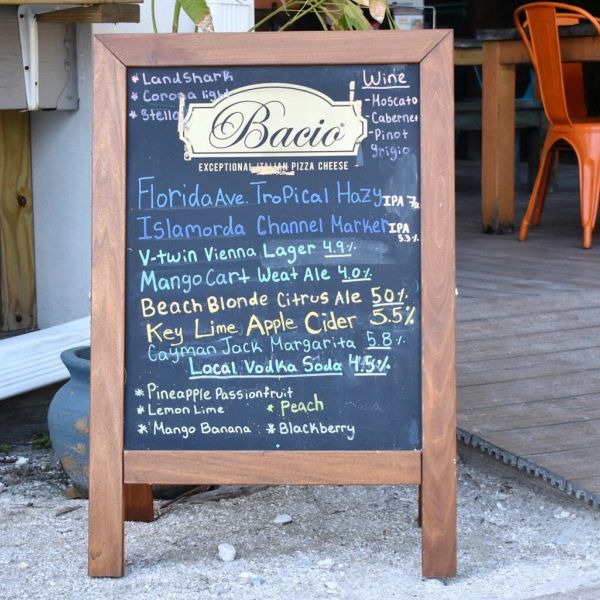 * Landshark
* Corona light
* Stella
Wine
- Moscato
- Cabernet
- Pinot
grigio
Bacio
EXCEPTIONAL ITALIAN PIZZA CHEESE
Florida Ave. Tropical Hazy IPA
Islamorda Channel Marker IPA 5.3%
V-twin Vienna Lager 4.9%
Mango Cart Weat Ale 4.0%
Beach Blonde Citrus Ale 5.0%
Key Lime Apple Cider 5.5%
Cayman Jack Margarita 5.8%
Local Vodka Soda 4.5%
* Pineapple Passionfruit
* Lemon Lime * Peach
* Mango Banana * Blackberry